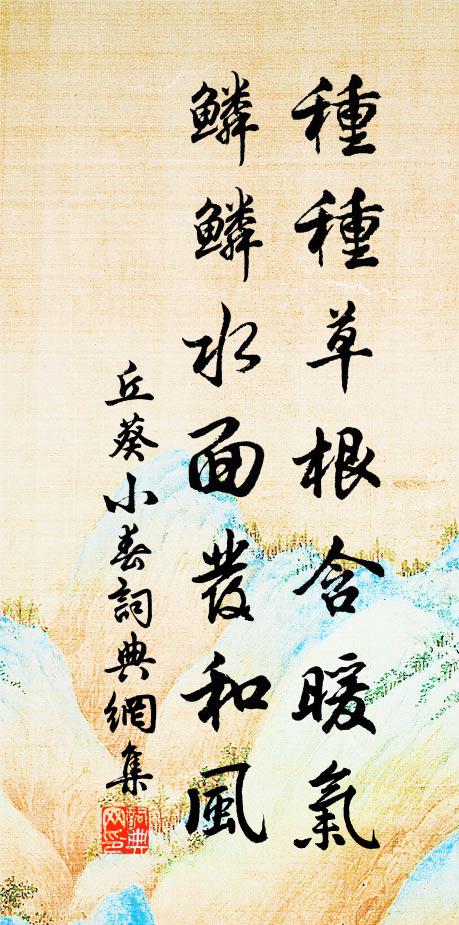 種種草根含暖氣
鱗鱗水面發和風
丘葵小春詞典網集
詞典網印